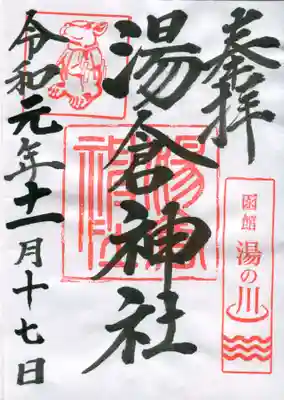 奉拝
函館 湯の川
湯倉神社
令和元年十一月十七日